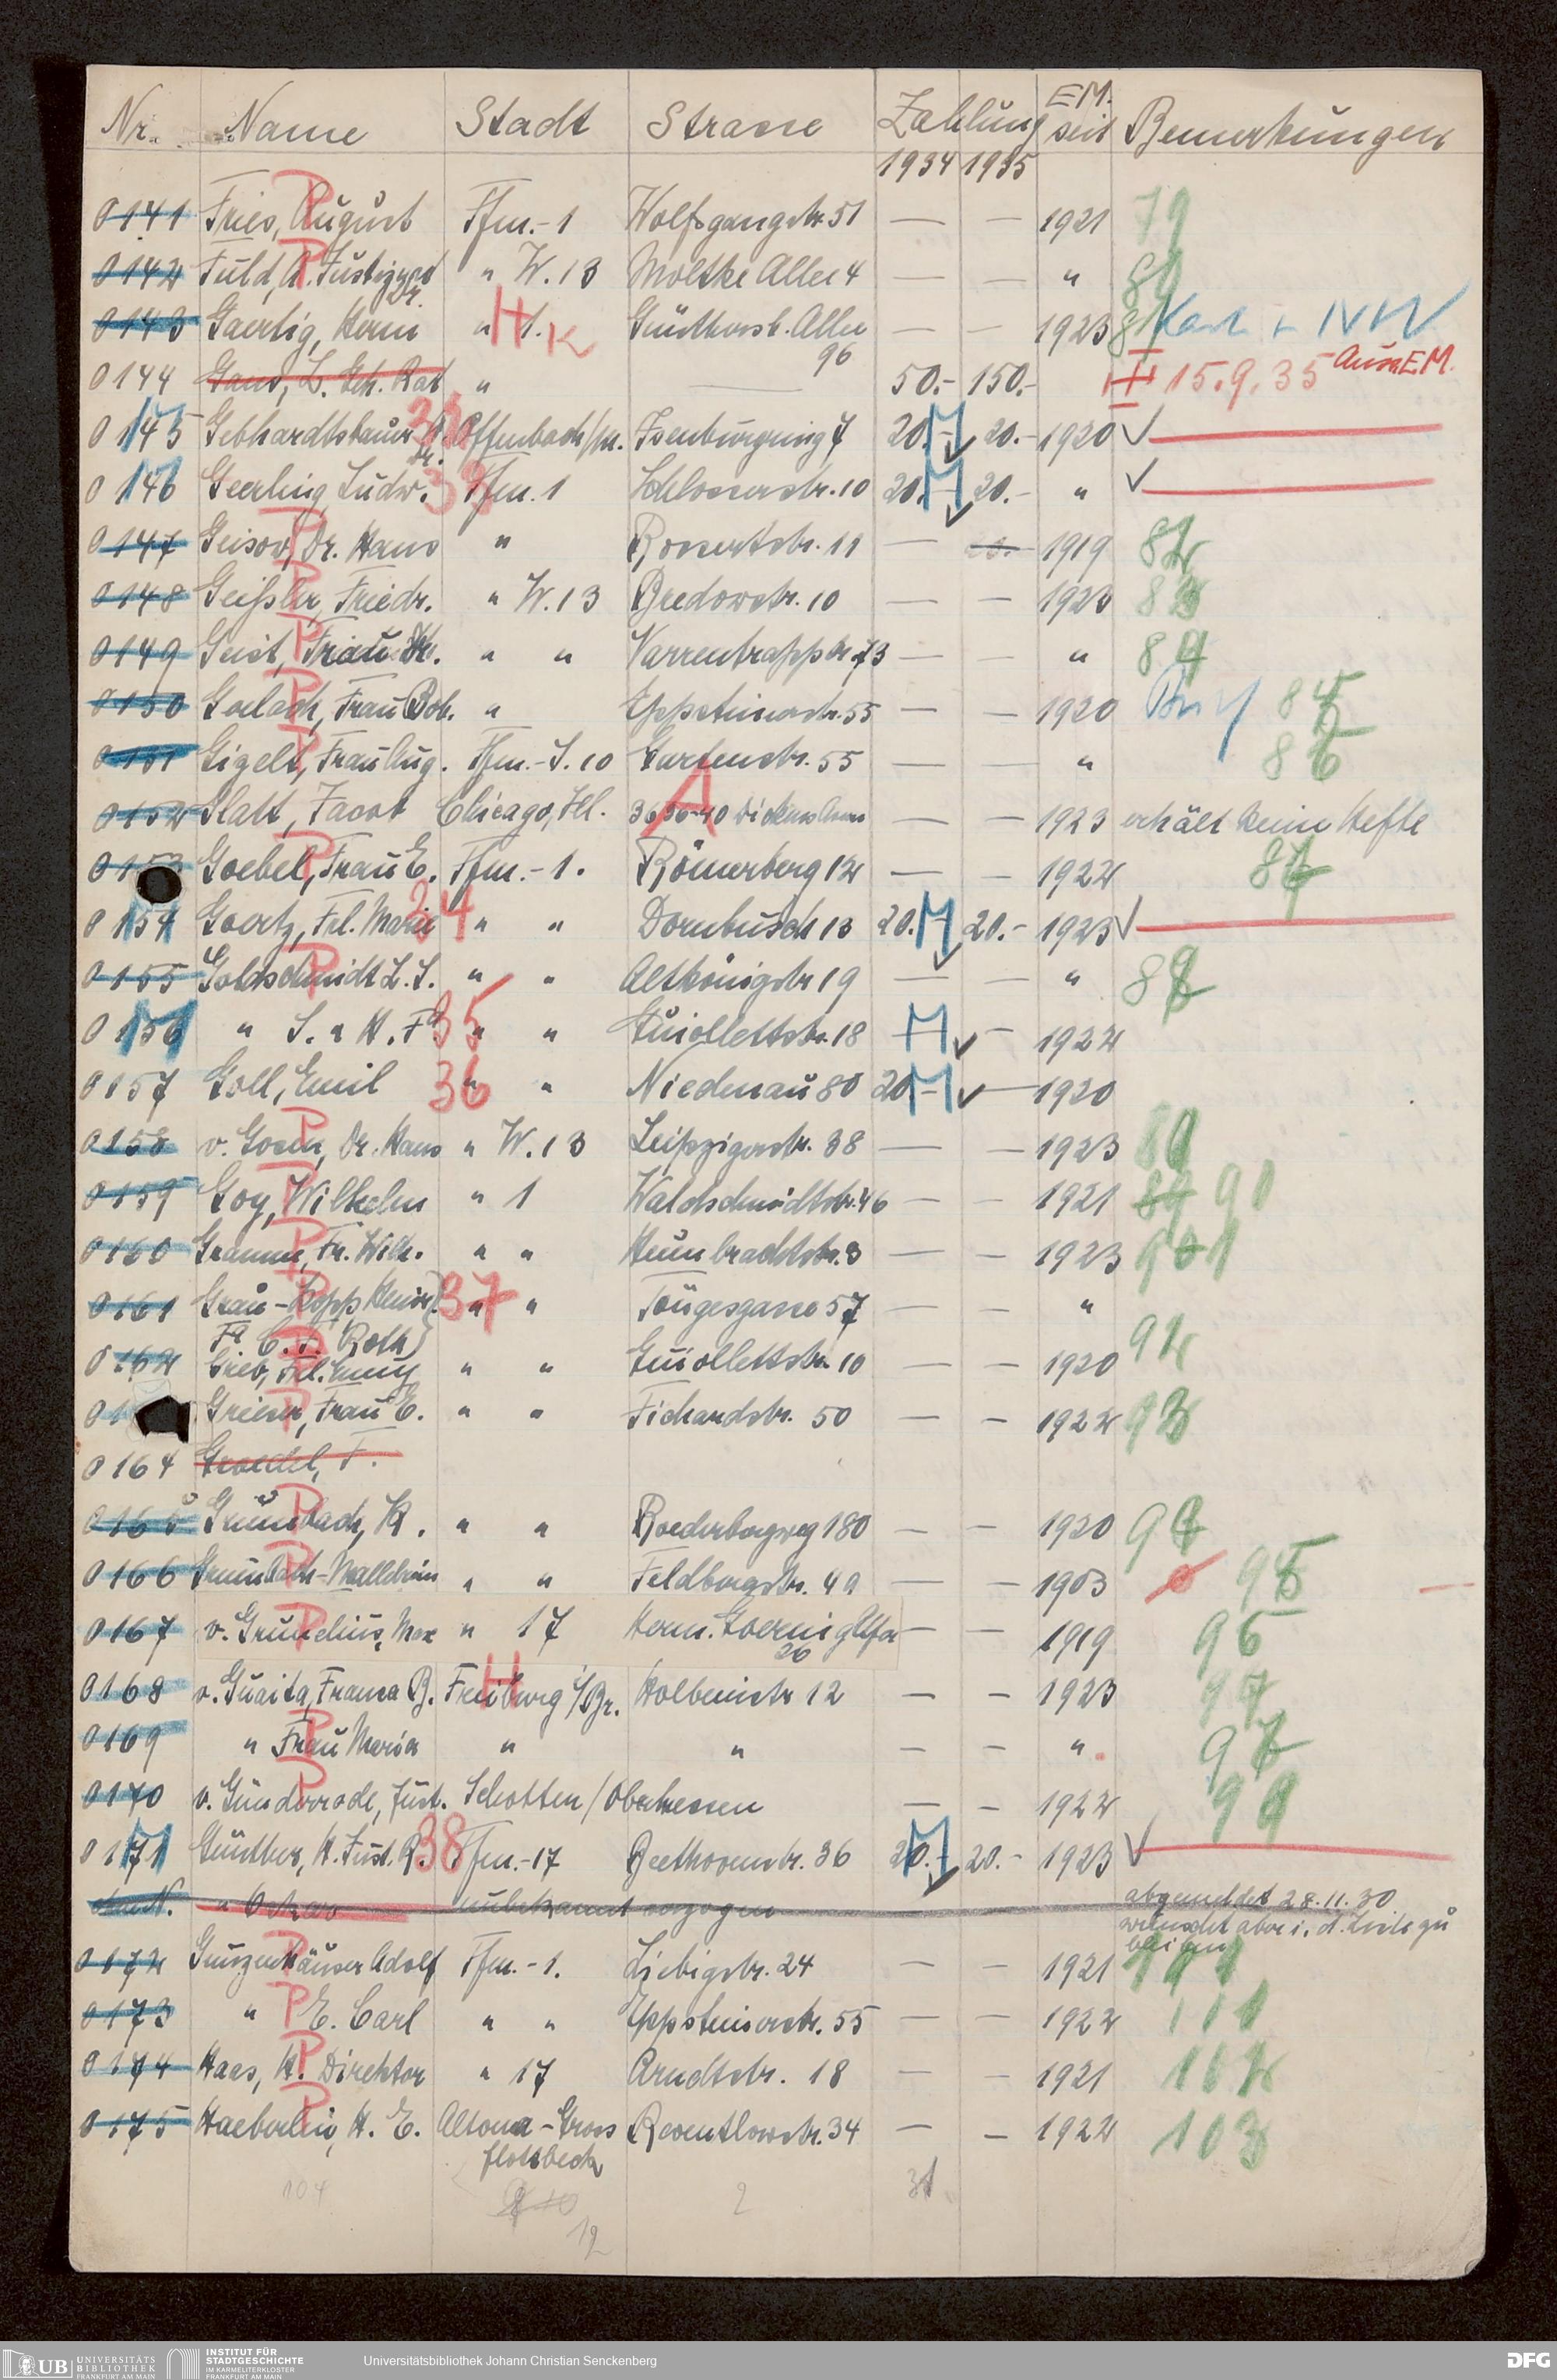 Nr. Name Stadt Strasse Zahlung EM. seit Bemerkungen
1934 1935
0141 Fries, August P Ffm.-1 Wolfsgangstr. 51 — — 1921 79
0142 Fuld, A. Justizrat P Dr. " W. 13 Moltke Allee 4 — — "
0143 Gaertig, Herm " 1. H K Günthersb. Allee 96 — — 1923
0144 Gans, L. Geh. Rat " 50.- 150.- 15.9.35 Ausw. E.M.
0145 Gebhardtsbauer Dr. Offenbach/M. Isenburgring 7 20.- M 20.- 1920 ✓
0146 Geerling, Ludw. 33 Ffm. 1 Schlosserstr. 10 20.- M 20.- " ✓
0147 Geisow, Dr. Hans P " Rossertstr. 11 — 1919 82
0148 Geißler, Friedr. P " W. 13 Bredowstr. 10 — — 1923 83
0149 Geist, Frau P " " Varrentrappstr. 73 — — " 84
0150 Gerlach, Frau P " Eppsteinerstr. 55 — — 1920 Brief 85
0151 Gigelt, Frau Aug. P Ffm.-S. 10 Gartenstr. 55 — — " 86
0152 Glatt, Jacob Chicago, Ill. 3630-40 Dickens Avenue A — — 1923 erhält keine Hefte
0153 Goebel, Frau E. P Ffm.-1. Römerberg 12 — — 1922 87
0154 Goertz, Frl. Marie 34 " " Dornbusch 13 20.- M 20.- 1923 ✓
0155 Goldschmidt L. S. P " " Altkönigstr 19 — — " 88
0156 " S. & H. Fa 35 " " Guiollettstr. 18 M ✓ — 1922
0157 Goll, Emil 36 " " Niedenau 80 20.- M ✓ — 1920
0158 v. Gosen, Dr. Hans P " W. 13 Leipzigerstr. 38 — — 1923 89
0159 Goy, Wilhelm P " 1 Waldschmidtstr. 46 — — 1921 89 90
0160 Gramm, Fr. Wilh. P " " Humbrachtstr. 3 — — 1923 91
0161 Grau-Kopp Heinr. P 37 " " Töngesgasse 57 — — "
Fa C. F. Roth
0162 Grieb, Frl. Emmy P " " Guiollettstr. 10 — — 1920 92
01 Grieser, Frau E. P " " Fichardstr. 50 — — 1922 93
0164 Groedel, F.
0165 Grünbach, K. P " " Roederbergweg 180 — — 1920 94
0166 Grumbach-Mallebrein P " " Feldbergstr. 49 — — 1903 95
0167 v. Grunelius, Max P " 17 Herm. Goering Ufer 26 — — 1919 96
0168 v. Guaita, Franca B. Freiburg i/Br. H Holbeinstr 12 — — 1923 97
0169 " Frau Maria P " " — — " 98
0170 v. Günderrode, Just. P Schotten/Oberhessen — — 1922 99
0171 Günther, H. Just. R. 38 Ffm.-17 Beethovenstr. 36 20.- M 20.- 1923 ✓
" Oskar unbekannt verzogen abgemeldet 28.11.30
wünscht aber i. d. Liste zu
bleiben
0172 Gunzenhäuser Adolf P Ffm.-1. Liebigstr. 24 — — 1921
0173 " E. Carl P " " Eppsteinerstr. 55 — — 1922 101
0174 Haas, H. Direktor P " 17 Arndtstr. 18 — — 1921 102
0175 Haeberlin, H. E. P Altona-Gross flottbeck Reventlowstr. 34 — — 1922 103
104 12 2 31
UB UNIVERSITÄTS BIBLIOTHEK FRANKFURT AM MAIN
INSTITUT FÜR STADTGESCHICHTE IM KARMELITERKLOSTER FRANKFURT AM MAIN
Universitätsbibliothek Johann Christian Senckenberg
DFG